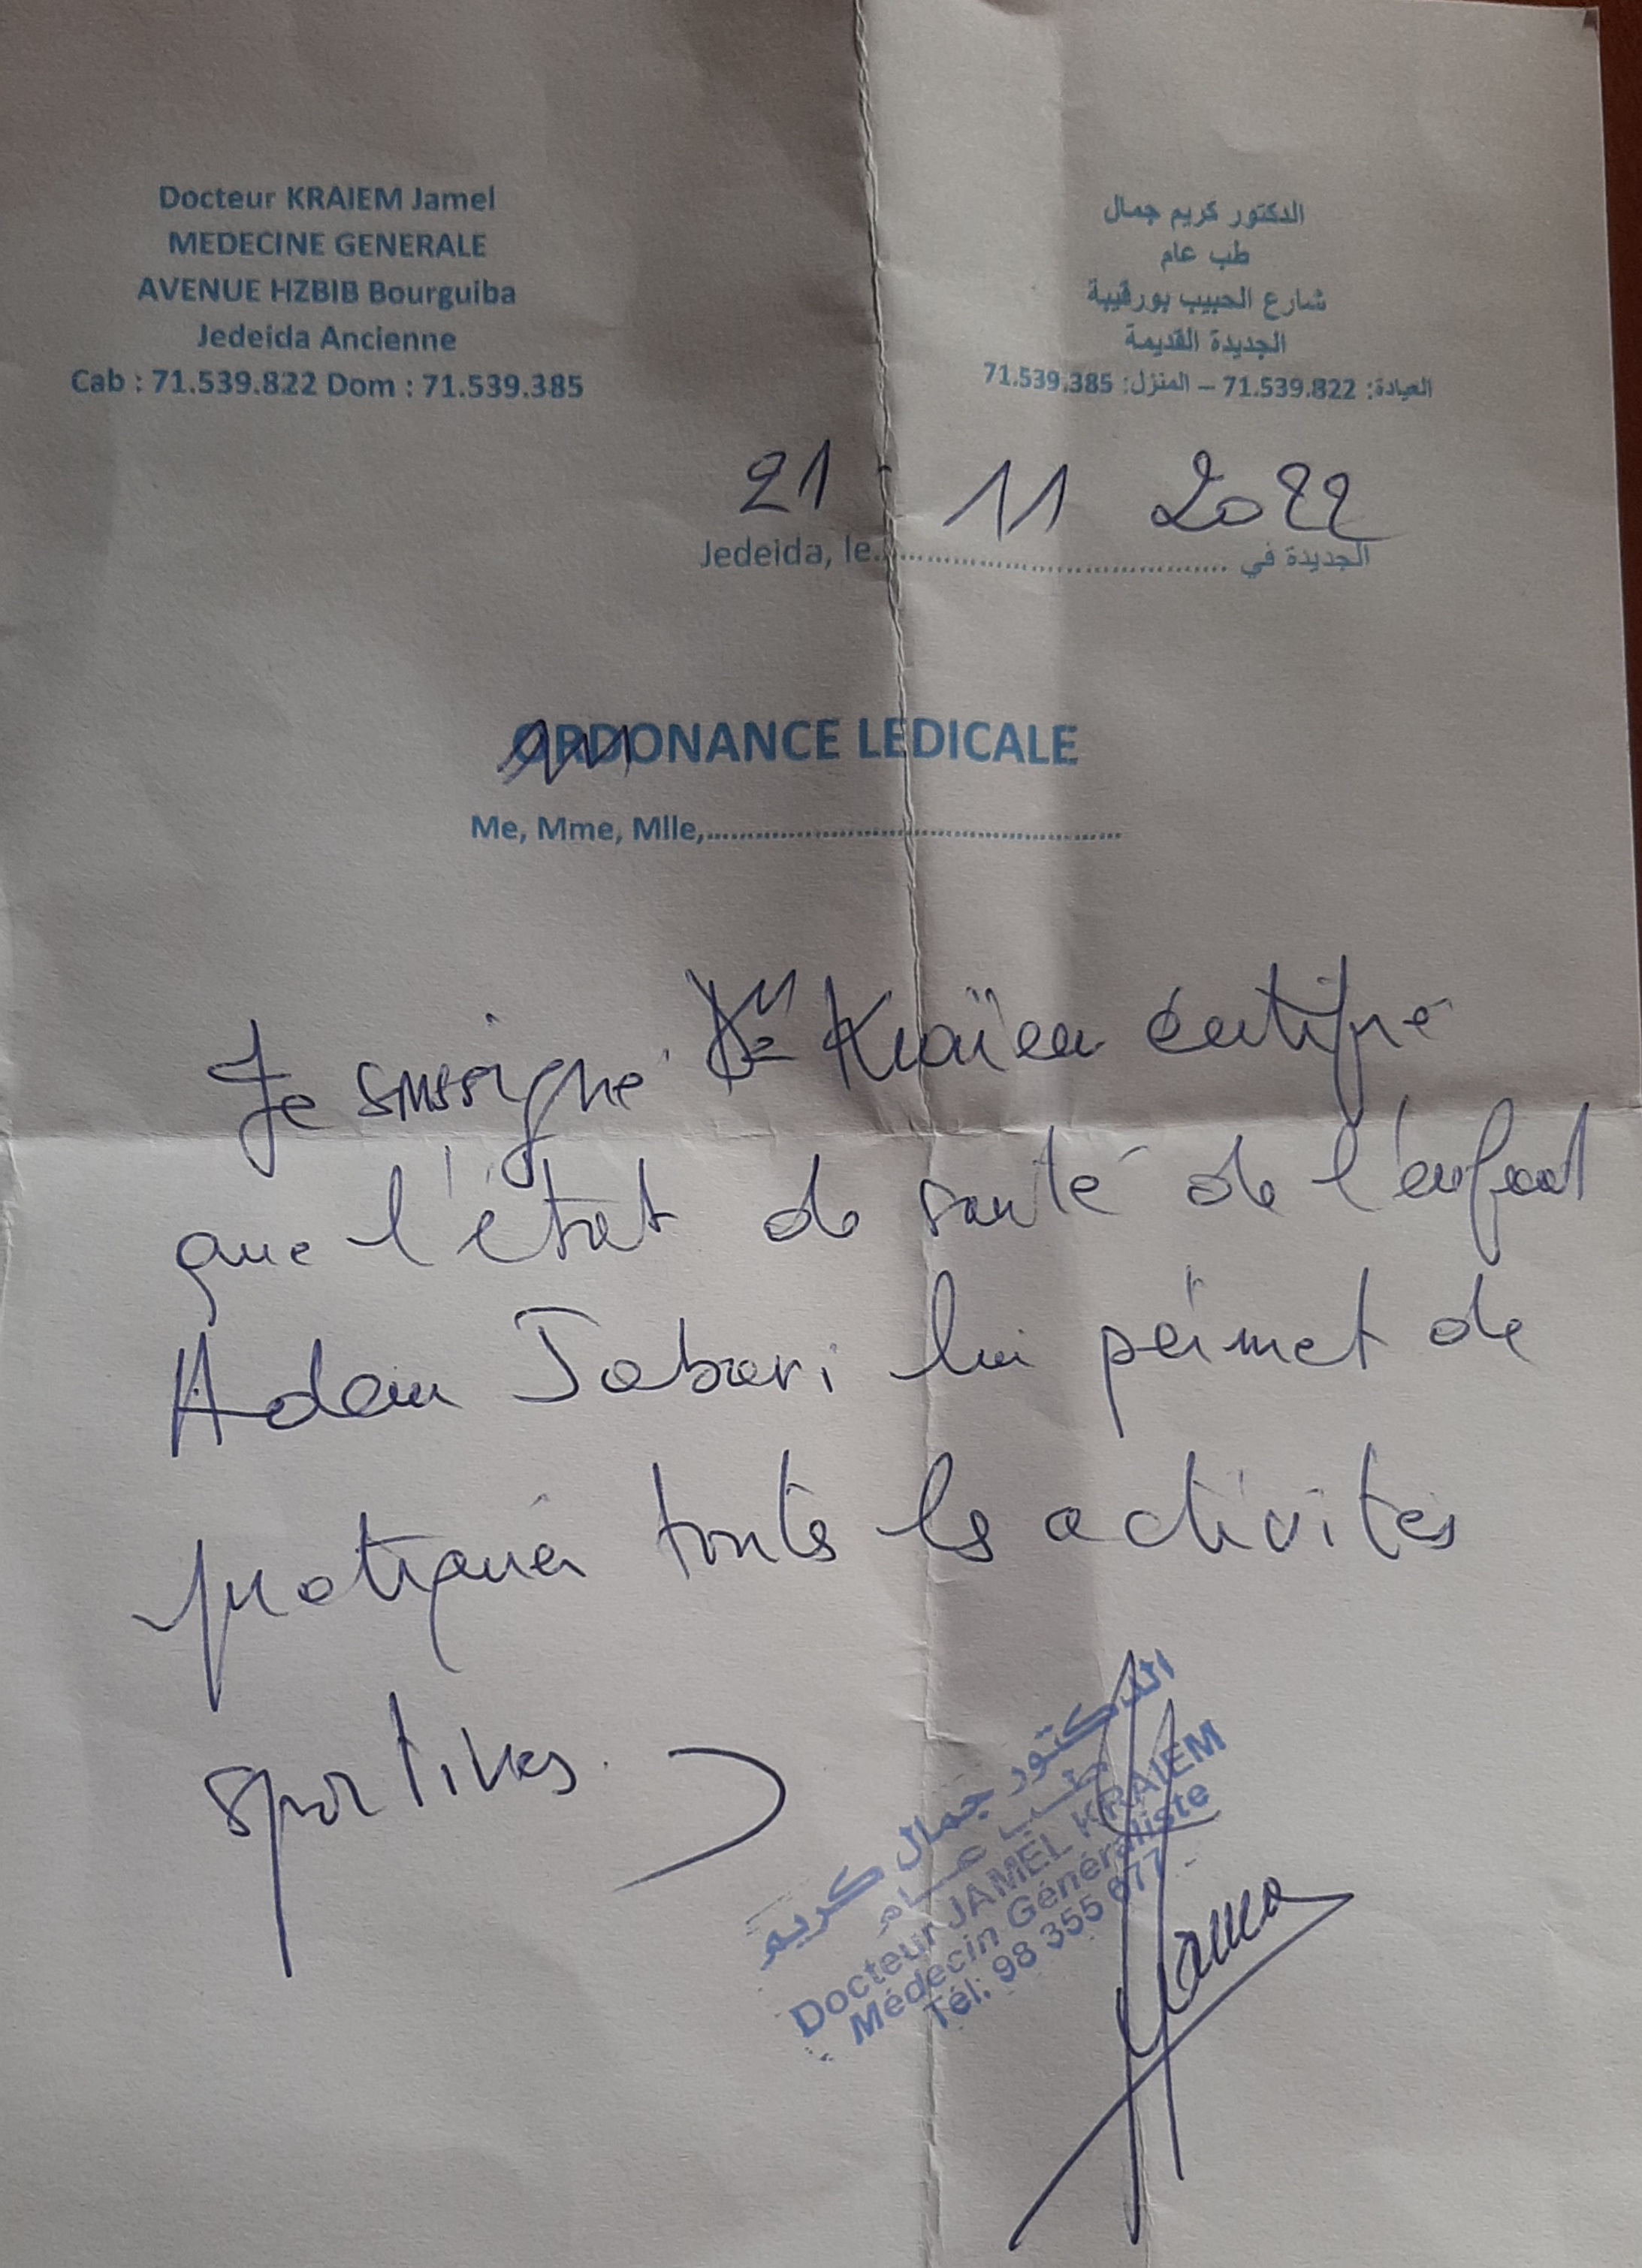 Docteur KRAIEM Jamel
MEDECINE GENERALE
AVENUE HZBIB Bourguiba
Jedeida Ancienne
Cab : 71.539.822 Dom : 71.539.385
الدكتور كريم جمال
طب عام
شارع الحبيب بورقيبة
الجديدة القديمة
العيادة: 71.539.822 – المنزل: 71.539.385
21 - 11 2022
Jedeida, le.................................... الجديدة في
ORDONANCE LEDICALE
Me, Mme, Mlle,..........................................
Je sussigné Dr Kraïem certifie
que l'état de santé de l'enfant
Adam Jabari lui permet de
pratiquer toutes les activités
sportives.
الدكتور جمال كريم
طب عام
Docteur JAMEL KRAIEM
Médecin Généraliste
Tél: 98 355 677